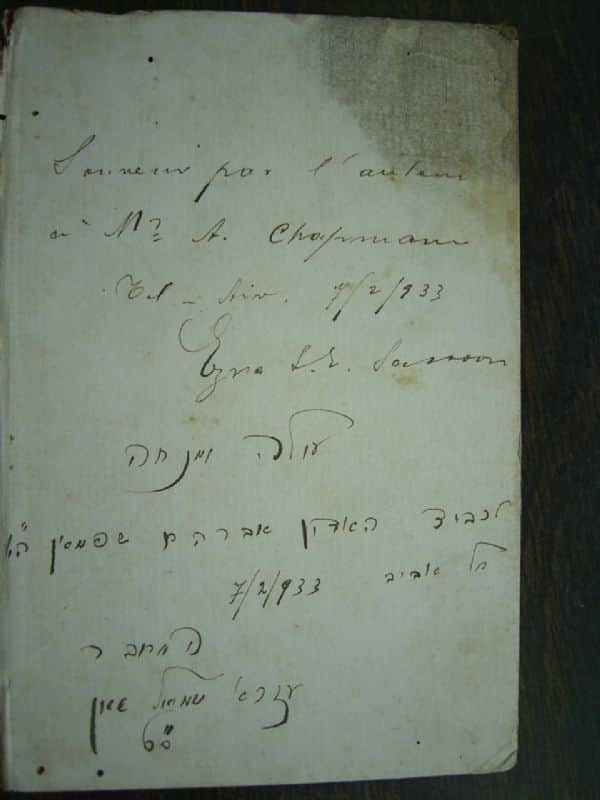 Souvenir par l'auteur
à Mr A. Chapmann
Tel-Aviv. 7/2/933
Ezra S. E. Sassoon
עולה ומנחה
לכבוד האדון אברהם שפמאין
תל אביב 7/2/933
המחבר
עזרא שמואל ששון
ס"ט